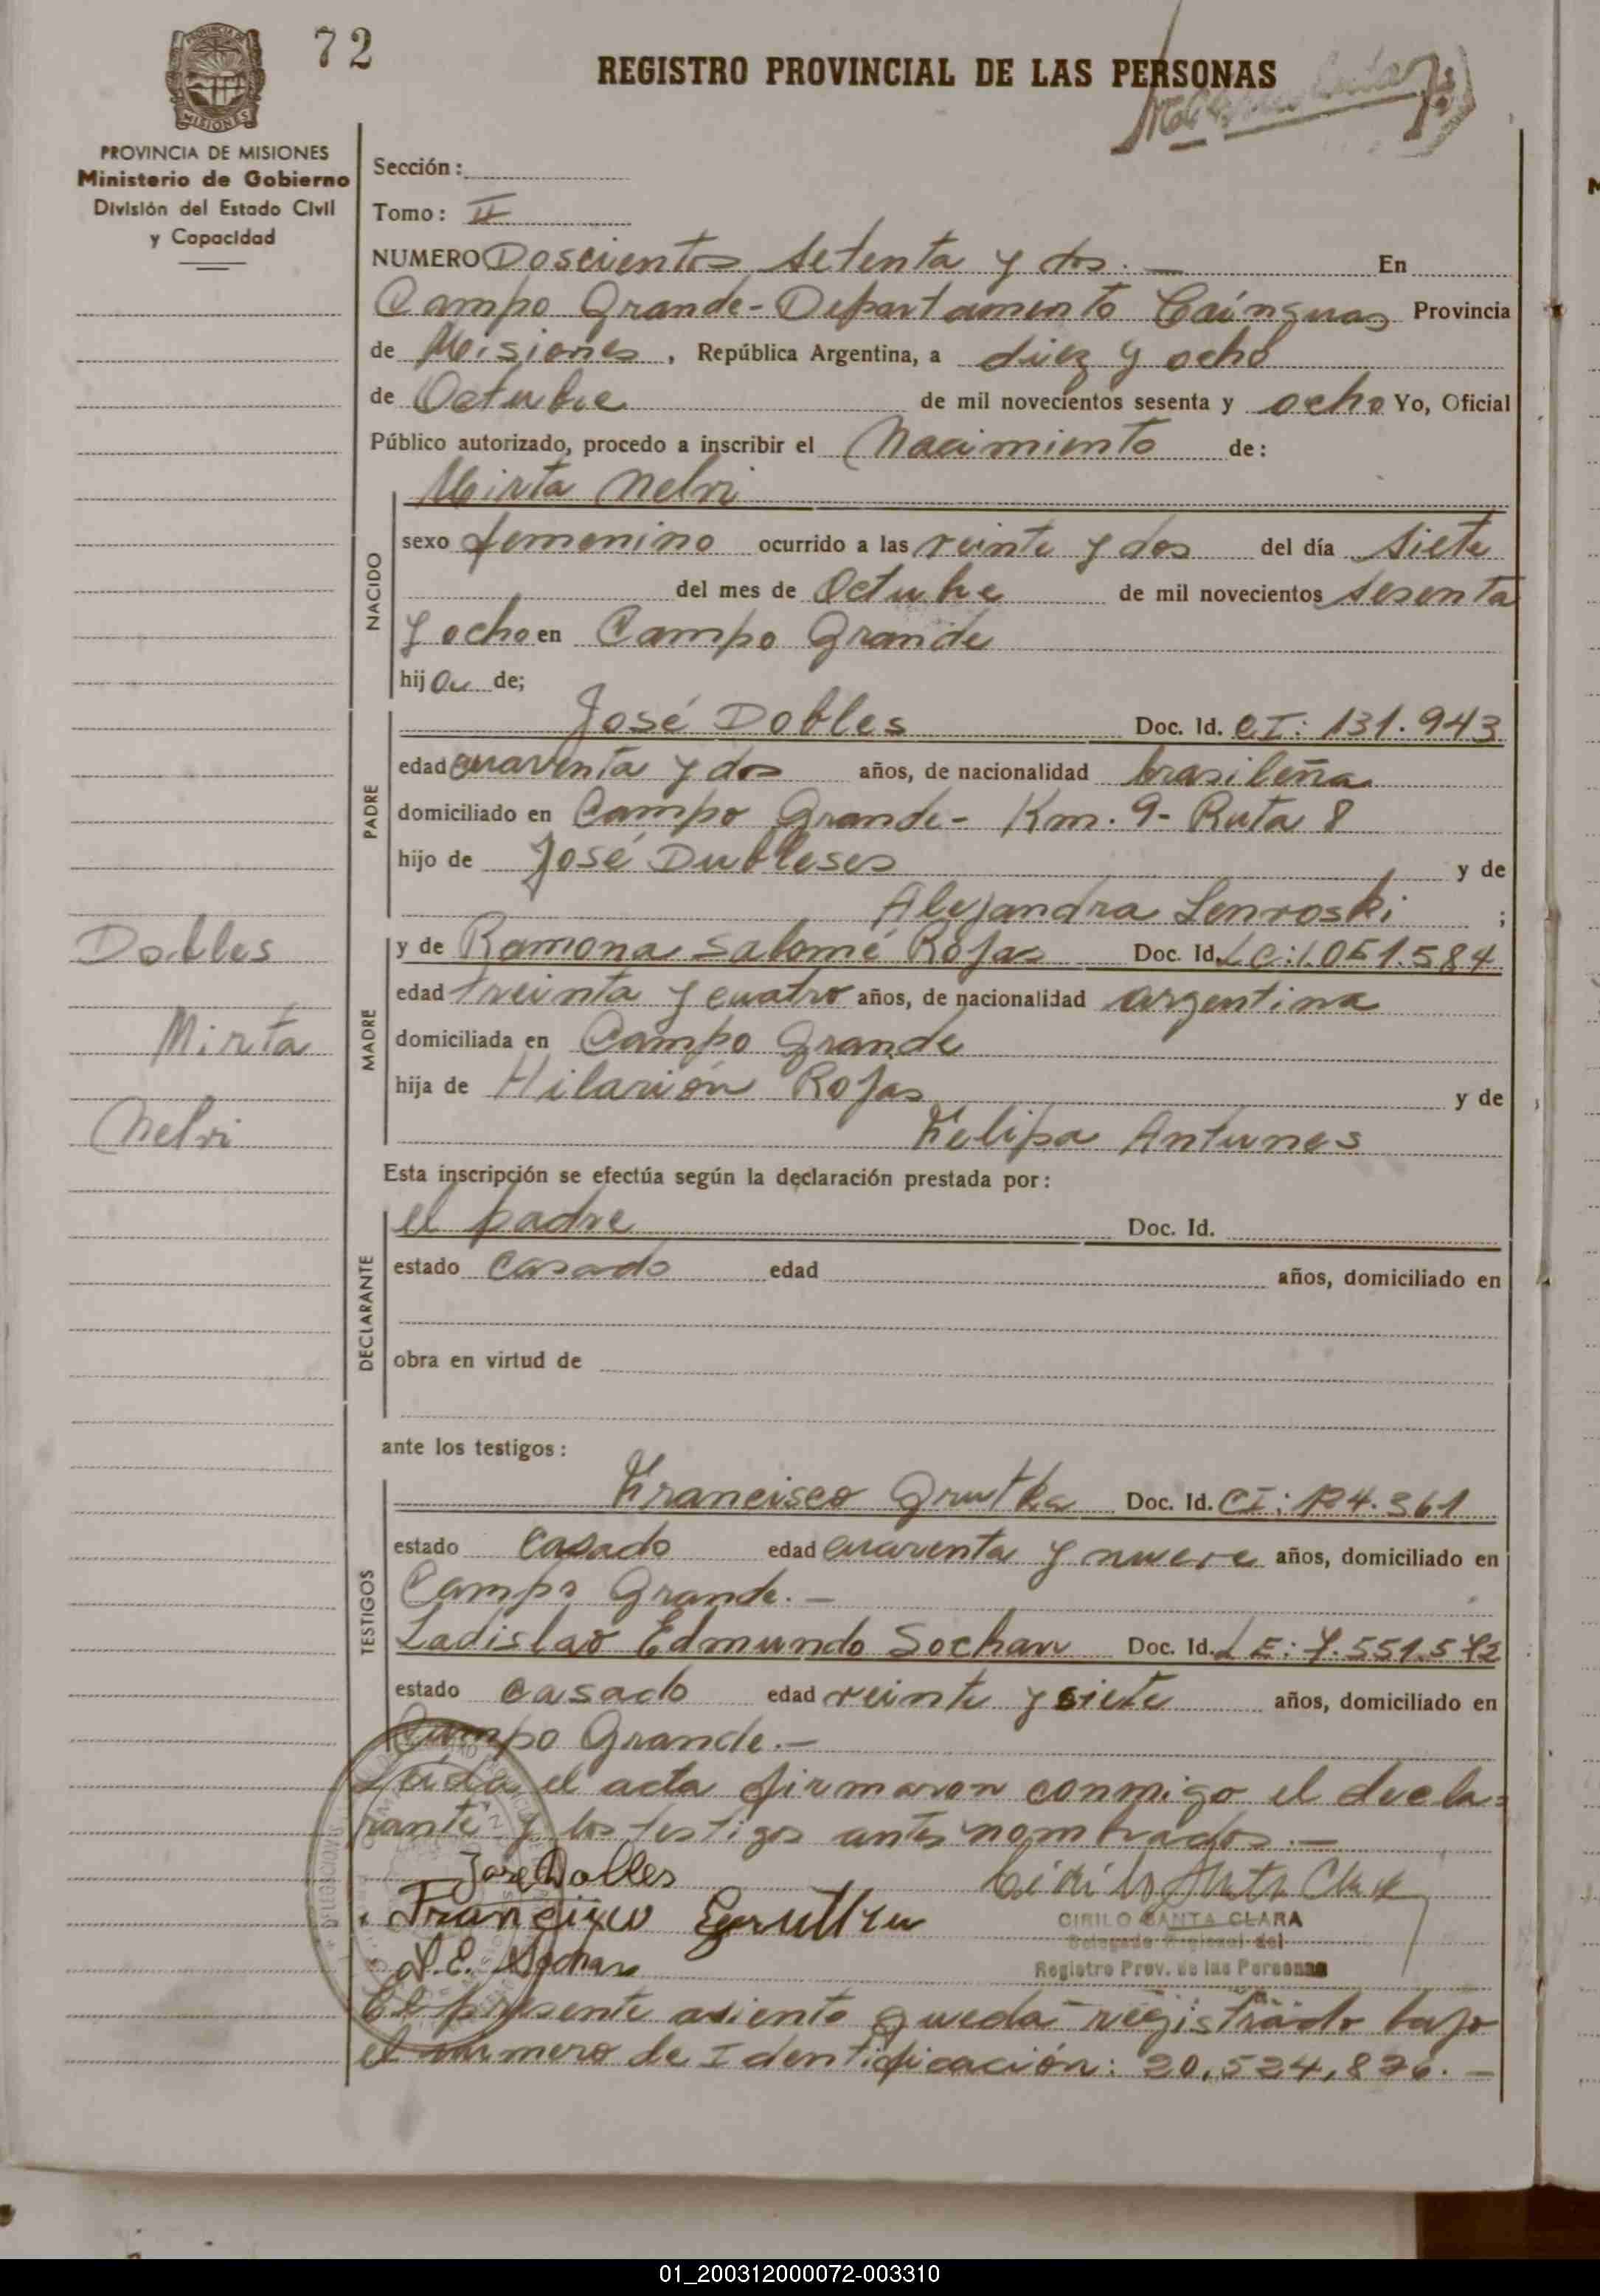 72
REGISTRO PROVINCIAL DE LAS PERSONAS
MISIONES
PROVINCIA DE MISIONES
Ministerio de Gobierno
División del Estado Civil
y Capacidad
Sección:
Tomo: II
NUMERO Doscientos setenta y dos. — En
Campo Grande - Departamento Cainguas Provincia
de Misiones, República Argentina, a diez y ocho
de Octubre de mil novecientos sesenta y ocho Yo, Oficial
Público autorizado, procedo a inscribir el Nacimiento de:
Mirta Nelvi
NACIDO
sexo femenino ocurrido a las veinte y dos del día siete
del mes de Octubre de mil novecientos sesenta
y ocho en Campo Grande
hija de;
PADRE
José Dobles Doc. Id. CI: 131.943
edad cuarenta y dos años, de nacionalidad brasileña
domiciliado en Campo Grande - Km. 9 - Ruta 8
hijo de José Dubleses y de
Alejandra Lenroski ;
Dobles
Mirta
Nelvi
MADRE
y de Ramona Salomé Rojas Doc. Id. LC: 1.051.584
edad treinta y cuatro años, de nacionalidad argentina
domiciliada en Campo Grande
hija de Hilarión Rojas y de
Felipa Antunes
Esta inscripción se efectúa según la declaración prestada por:
DECLARANTE
el padre Doc. Id.
estado casado edad años, domiciliado en
obra en virtud de
ante los testigos:
TESTIGOS
Francisco Doc. Id. CI: 124.361
estado casado edad cuarenta y nueve años, domiciliado en
Campo Grande. —
Ladislao Edmundo Sochan Doc. Id. LE: 7.551.572
estado casado edad veinte y siete años, domiciliado en
Campo Grande. —
Leída el acta firmaron conmigo el decla-
rante y los testigos antes nombrados. —
Jose Dobles
Francisco
L.E. Sochan
CIRILO SANTA CLARA
Delegado Regional del
Registro Prov. de las Personas
El presente asiento queda registrado bajo
el número de Identificación: 20.524.876. —
01_200312000072-003310